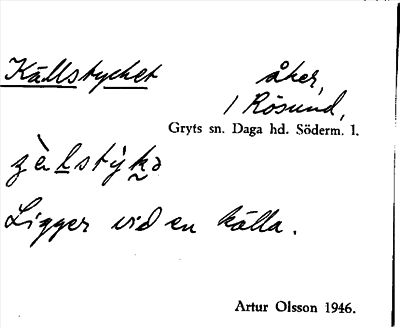 Källstycket åker,
1 Rösund,
Gryts sn. Daga hd. Söderm. l.
Ligger vid en källa.
Artur Olsson 1946.